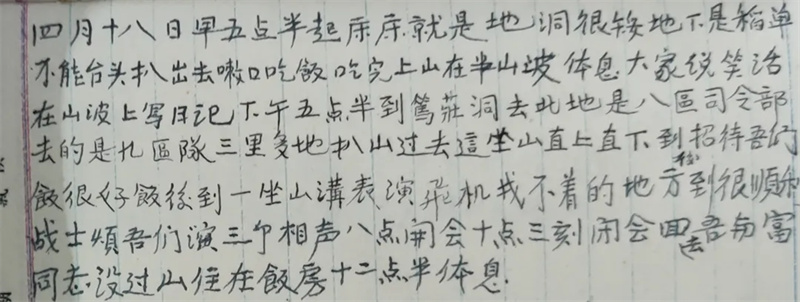 四月十八日早五点半起床床就是地洞很矮地下是稻草
不能台头扒出去嗽口吃飯吃完上山在半山波体息大家说笑话
在山波上写日记下午五点半到篤莊洞去此地是八區司令部
去的是九區隊三里多地扒山过去這坐山直上直下到招待吾们
飯很好飯後到一坐山溝表演飛机找不着的地方到後很順利
战士煩吾们演三个相声八点開会十点三刻闭会回去吾与富
同志没过山住在飯房十二点半体息.